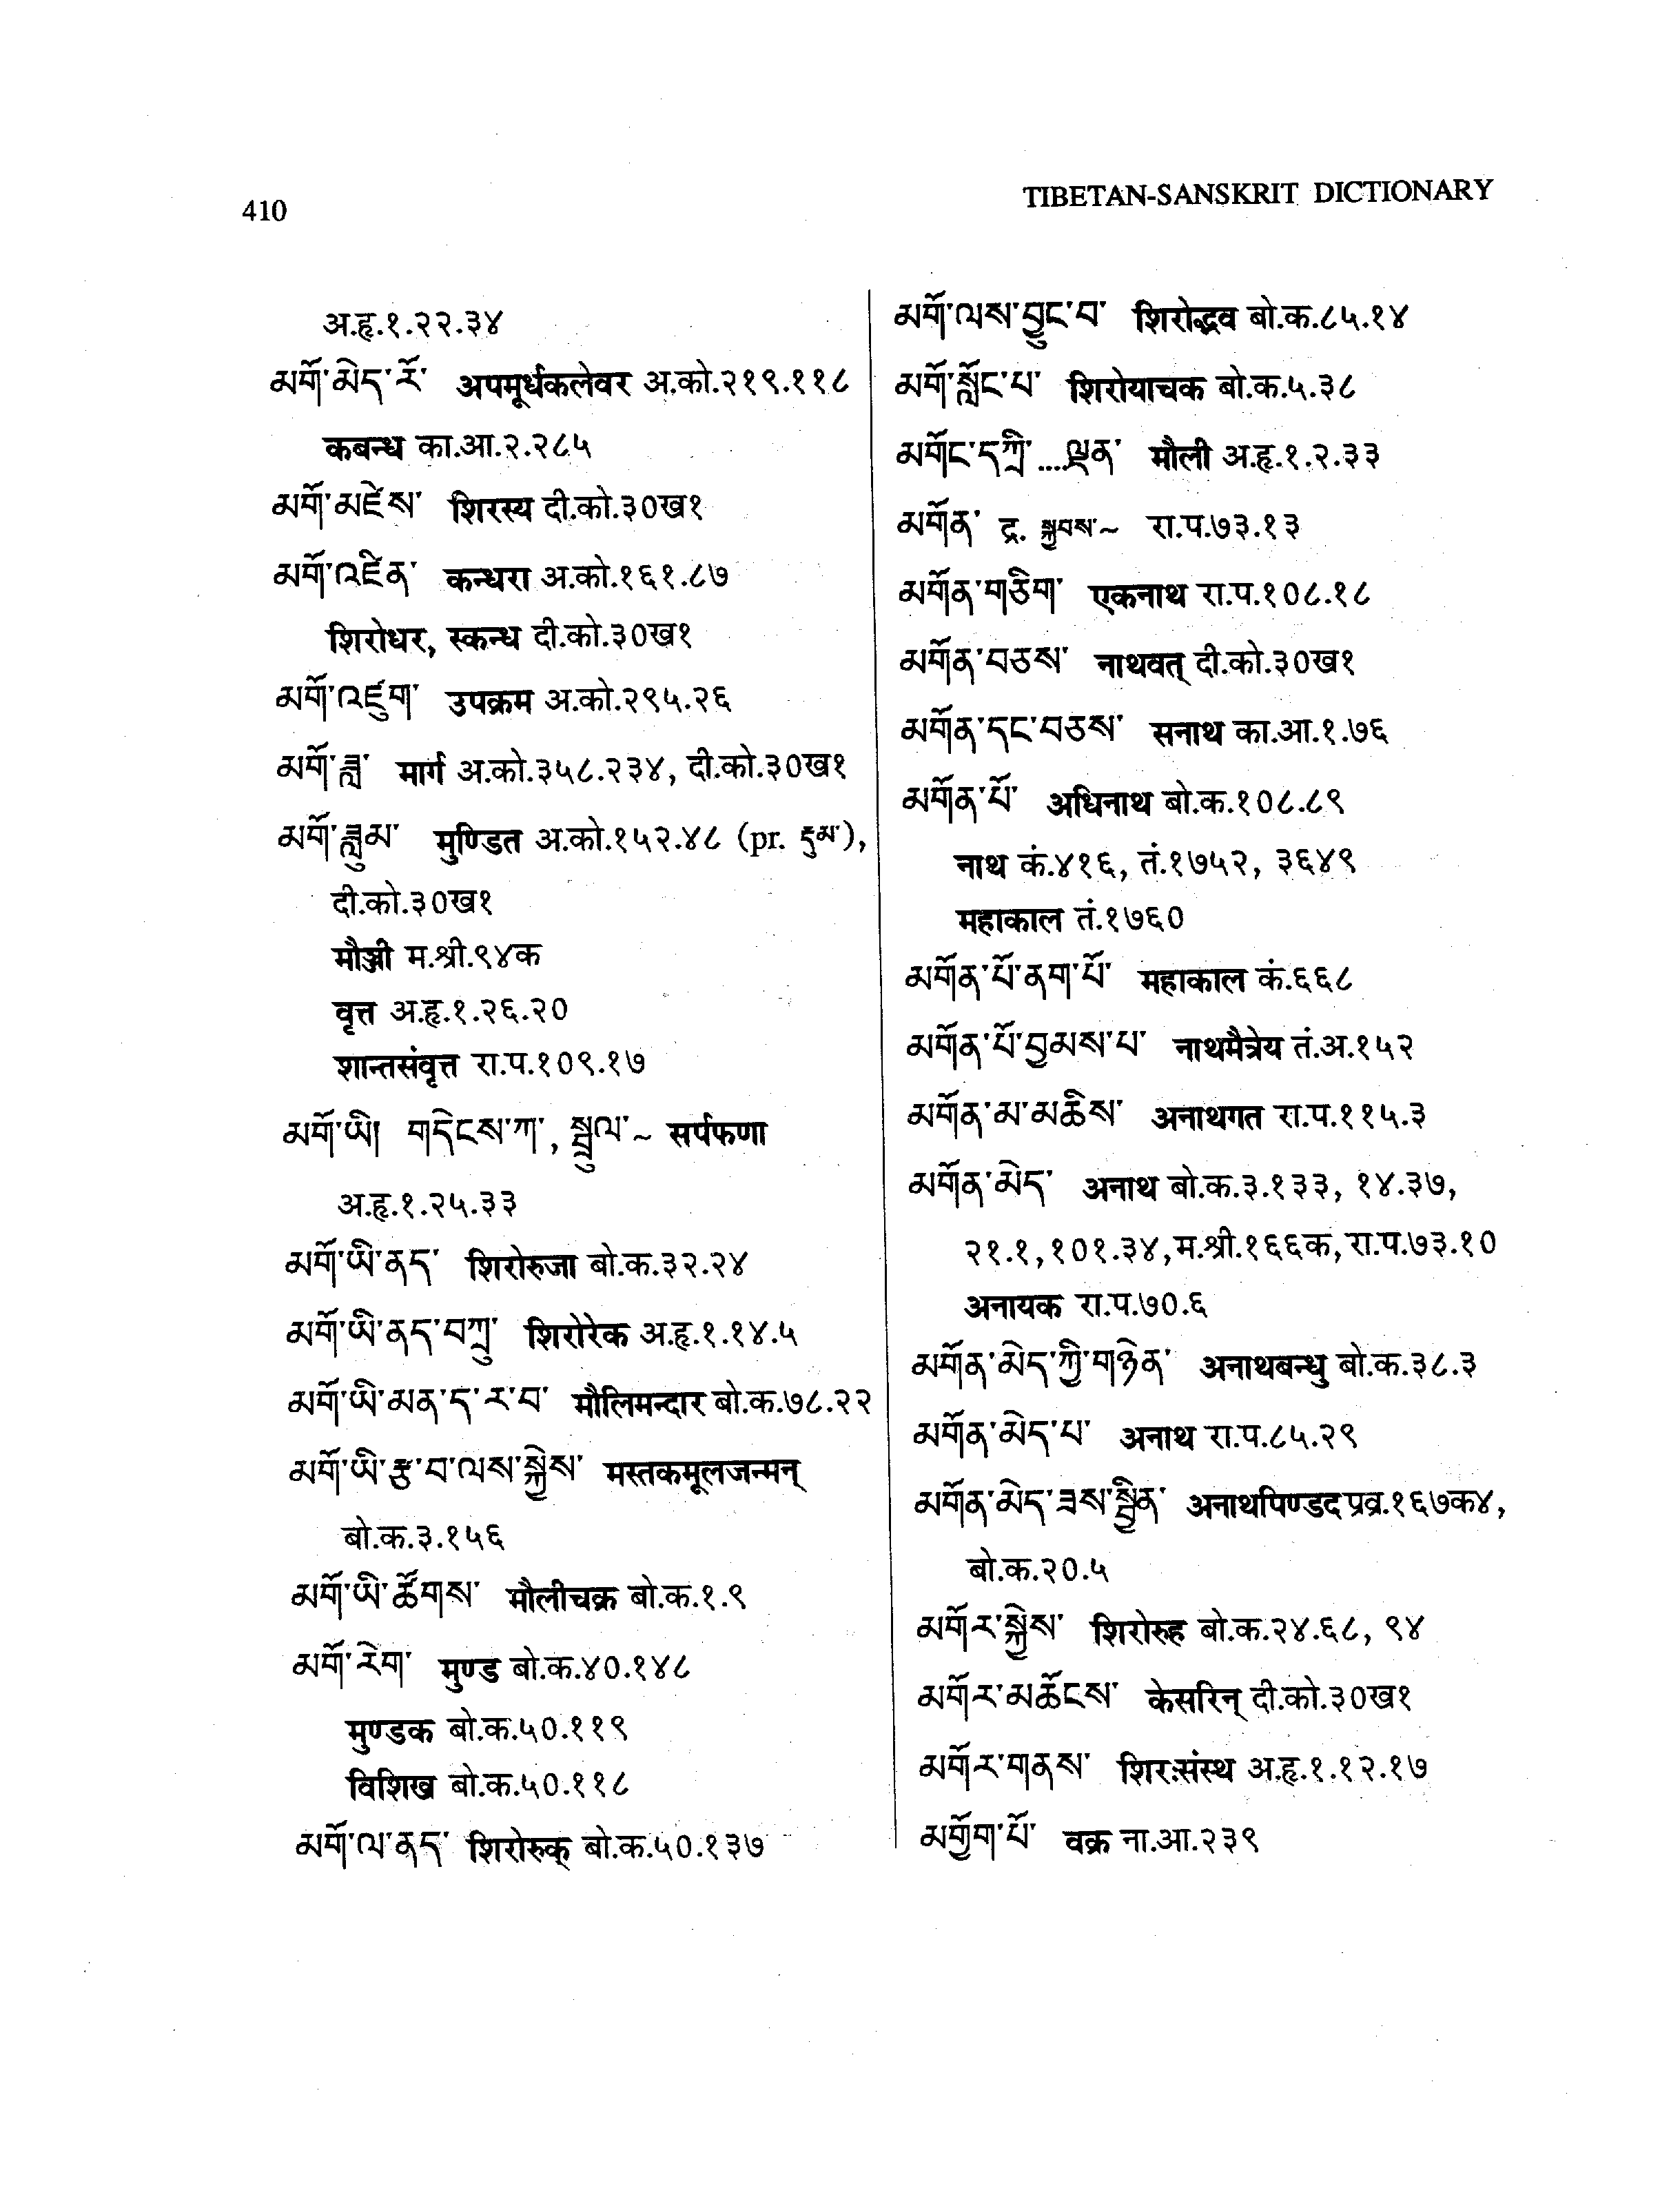 410
TIBETAN-SANSKRIT DICTIONARY
अ.हृ.१.२२.३४
མགོ་མེད་རོ་ अपमूर्धकलेवर अ.को.२१९.११८
कबन्ध का.आ.२.२८५
མགོ་མཛེས་ शिरस्य दी.को.३०ख१
མགོ་འཛིན་ कन्धरा अ.को.१६१.८७
शिरोधर, स्कन्ध दी.को.३०ख१
མགོ་འཛུག་ उपक्रम अ.को.२९५.२६
མགོ་ཟླ་ मार्ग अ.को.३५८.२३४, दी.को.३०ख१
མགོ་ཟླུམ་ मुण्डित अ.को.१५२.४८ (pr. རྡུམ་),
दी.को.३०ख१
मौञ्जी म.श्री.९४क
वृत्त अ.हृ.१.२६.२०
शान्तसंवृत्त रा.प.१०९.१७
མགོ་ཡི། གདེངས་ཀ་, སྦྲུལ་~ सर्पफणा
अ.हृ.१.२५.३३
མགོ་ཡི་ནད་ शिरोरुजा बो.क.३२.२४
མགོ་ཡི་ནད་བཀྲུ་ शिरोरेक अ.हृ.१.१४.५
མགོ་ཡི་མན་ད་ར་བ་ मौलिमन्दार बो.क.७८.२२
མགོ་ཡི་རྩ་བ་ལས་སྐྱེས་ मस्तकमूलजन्मन्
बो.क.३.१५६
མགོ་ཡི་ཚོགས་ मौलीचक्र बो.क.१.९
མགོ་རེག་ मुण्ड बो.क.४०.१४८
मुण्डक बो.क.५०.११९
विशिख बो.क.५०.११८
མགོ་ལ་ནད་ शिरोरुक् बो.क.५०.१३७
མགོ་ལས་བྱུང་བ་ शिरोद्भव बो.क.८५.१४
མགོ་སློང་པ་ शिरोयाचक बो.क.५.३८
མགོང་དཀྲི་....ལྡན་ मौली अ.हृ.१.२.३३
མགོན་ द्र. སྐྱབས་~ रा.प.७३.१३
མགོན་གཅིག་ एकनाथ रा.प.१०८.१८
མགོན་བཅས་ नाथवत् दी.को.३०ख१
མགོན་དང་བཅས་ सनाथ का.आ.१.७६
མགོན་པོ་ अधिनाथ बो.क.१०८.८९
नाथ कं.४१६, तं.१७५२, ३६४९
महाकाल तं.१७६०
མགོན་པོ་ནག་པོ་ महाकाल कं.६६८
མགོན་པོ་བྱམས་པ་ नाथमैत्रेय तं.अ.१५२
མགོན་མ་མཆིས་ अनाथगत रा.प.११५.३
མགོན་མེད་ अनाथ बो.क.३.१३३, १४.३७,
२१.१,१०१.३४,म.श्री.१६६क,रा.प.७३.१०
अनायक रा.प.७०.६
མགོན་མེད་ཀྱི་གཉེན་ अनाथबन्धु बो.क.३८.३
མགོན་མེད་པ་ अनाथ रा.प.८५.२९
མགོན་མེད་ཟས་སྦྱིན་ अनाथपिण्डद प्रव्र.१६७क४,
बो.क.२०.५
མགོར་སྐྱེས་ शिरोरुह बो.क.२४.६८, ९४
མགོར་མཆོངས་ केसरिन् दी.को.३०ख१
མགོར་གནས་ शिरःसंस्थ अ.हृ.१.१२.१७
མགྱོག་པོ་ वक्र ना.आ.२३९